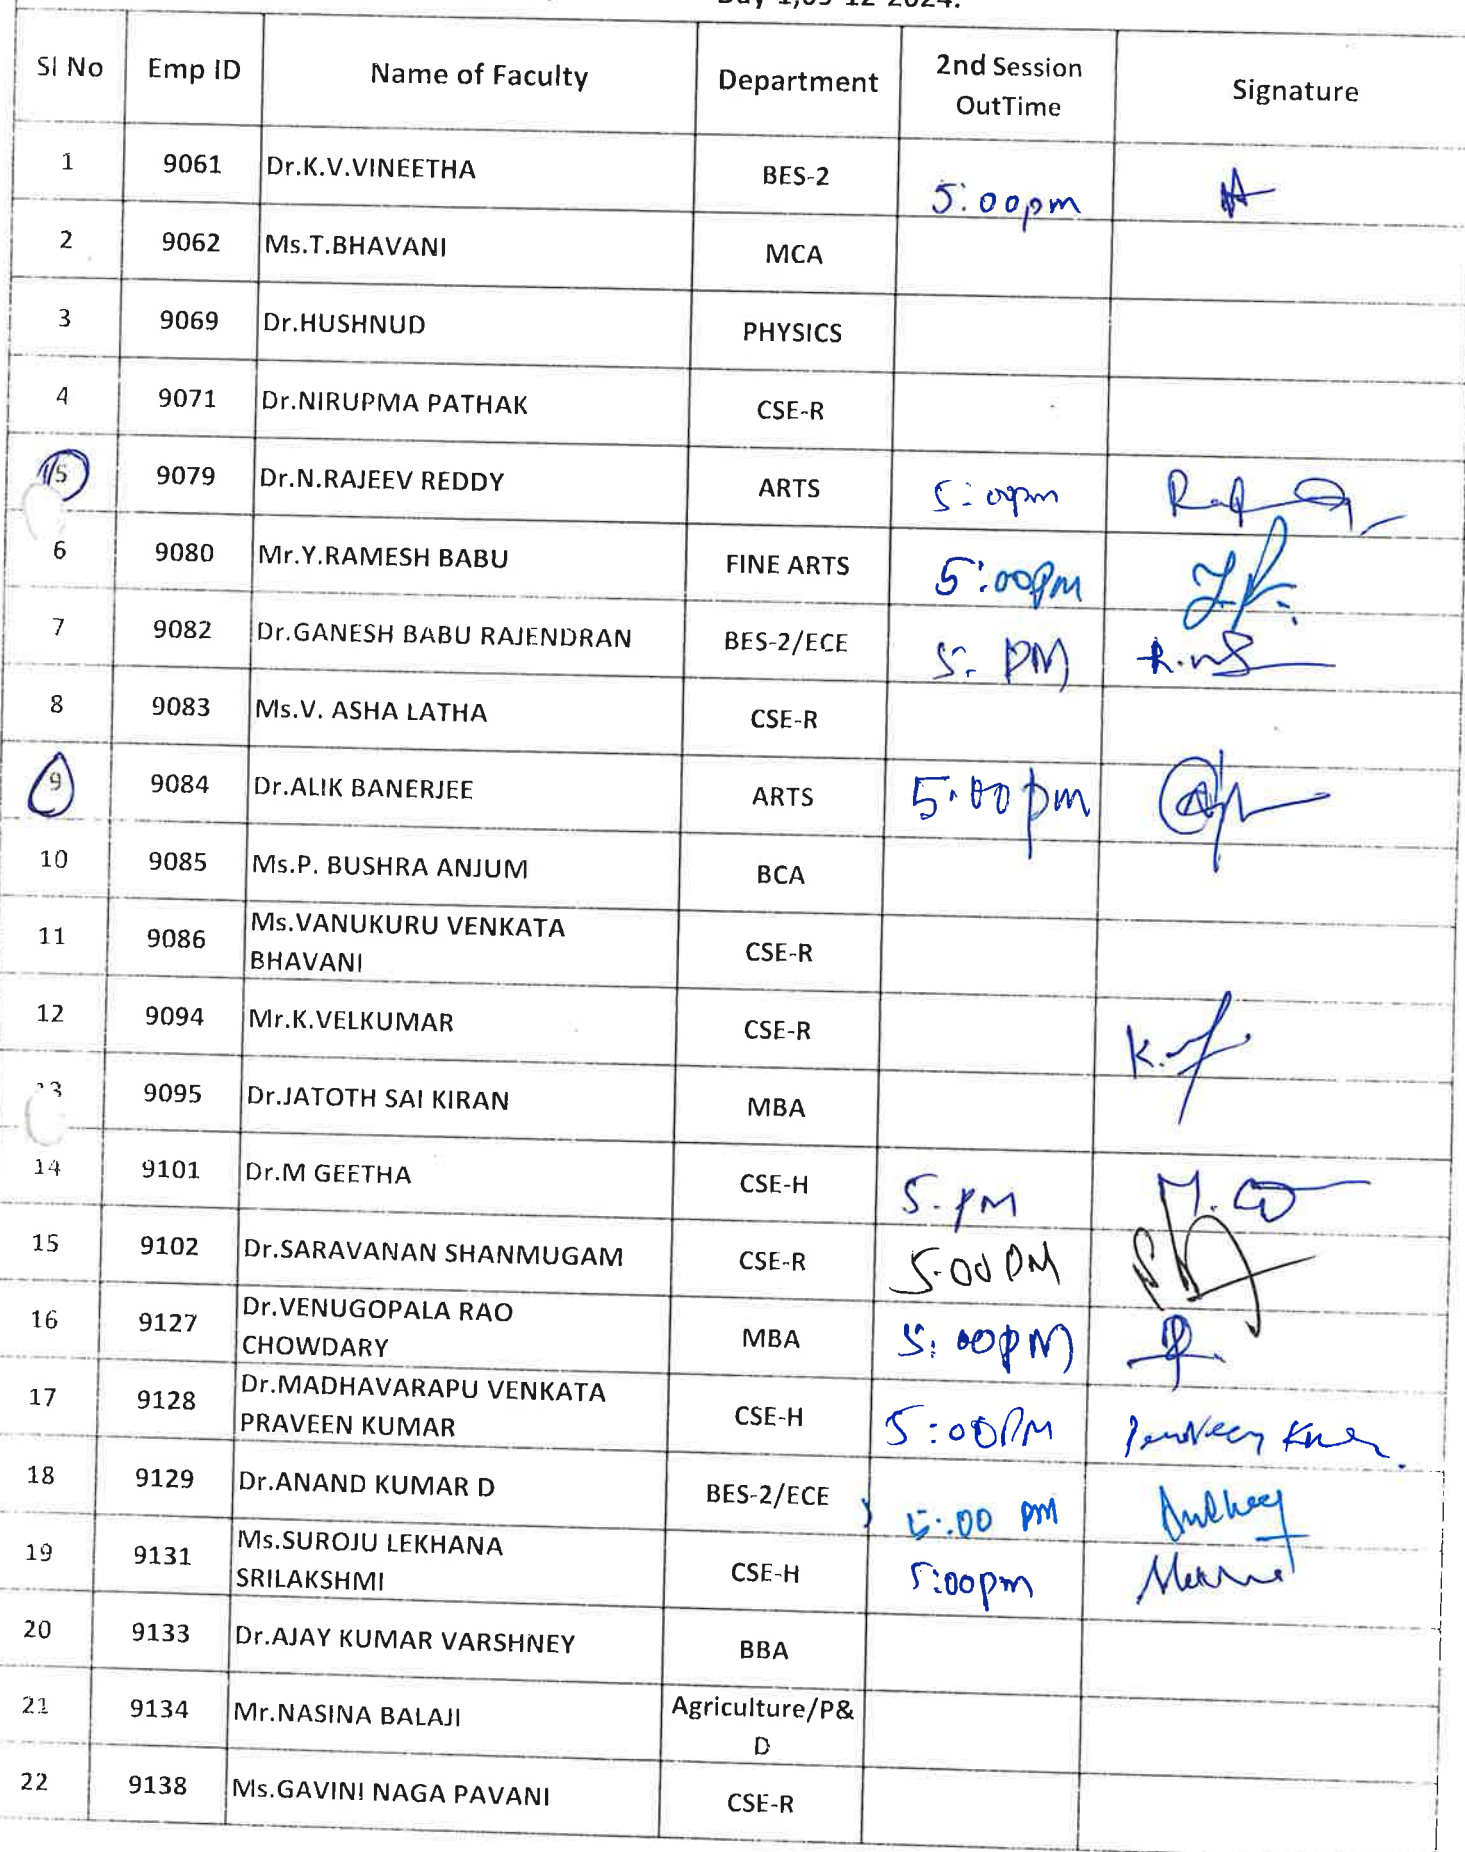 Day-1,05-12-2024.
Sl No Emp ID Name of Faculty Department 2nd Session OutTime Signature
1 9061 Dr.K.V.VINEETHA BES-2 5:00pm
2 9062 Ms.T.BHAVANI MCA
3 9069 Dr.HUSHNUD PHYSICS
4 9071 Dr.NIRUPMA PATHAK CSE-R
5 9079 Dr.N.RAJEEV REDDY ARTS 5:00pm
6 9080 Mr.Y.RAMESH BABU FINE ARTS 5:00pm
7 9082 Dr.GANESH BABU RAJENDRAN BES-2/ECE 5. PM
8 9083 Ms.V. ASHA LATHA CSE-R
9 9084 Dr.ALIK BANERJEE ARTS 5:00pm
10 9085 Ms.P. BUSHRA ANJUM BCA
11 9086 Ms.VANUKURU VENKATA
BHAVANI CSE-R
12 9094 Mr.K.VELKUMAR CSE-R
13 9095 Dr.JATOTH SAI KIRAN MBA
14 9101 Dr.M GEETHA CSE-H 5.PM
15 9102 Dr.SARAVANAN SHANMUGAM CSE-R 5.00 PM
16 9127 Dr.VENUGOPALA RAO
CHOWDARY MBA 5:00PM
17 9128 Dr.MADHAVARAPU VENKATA
PRAVEEN KUMAR CSE-H 5:00PM
18 9129 Dr.ANAND KUMAR D BES-2/ECE 5:00 PM
19 9131 Ms.SUROJU LEKHANA
SRILAKSHMI CSE-H 5:00pm
20 9133 Dr.AJAY KUMAR VARSHNEY BBA
21 9134 Mr.NASINA BALAJI Agriculture/P&
D
22 9138 Ms.GAVINI NAGA PAVANI CSE-R